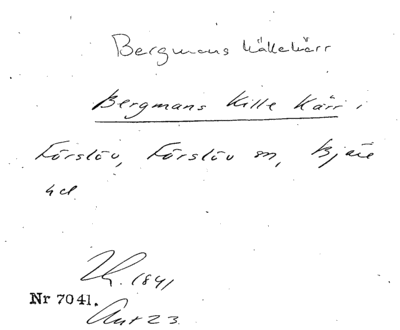 Bergmans källekärr
Bergmans Kille Kärr,
Förslöv, Förslöv sn, Bjäre
hd
Lh. 1841
Nr 7041.
Akt 23